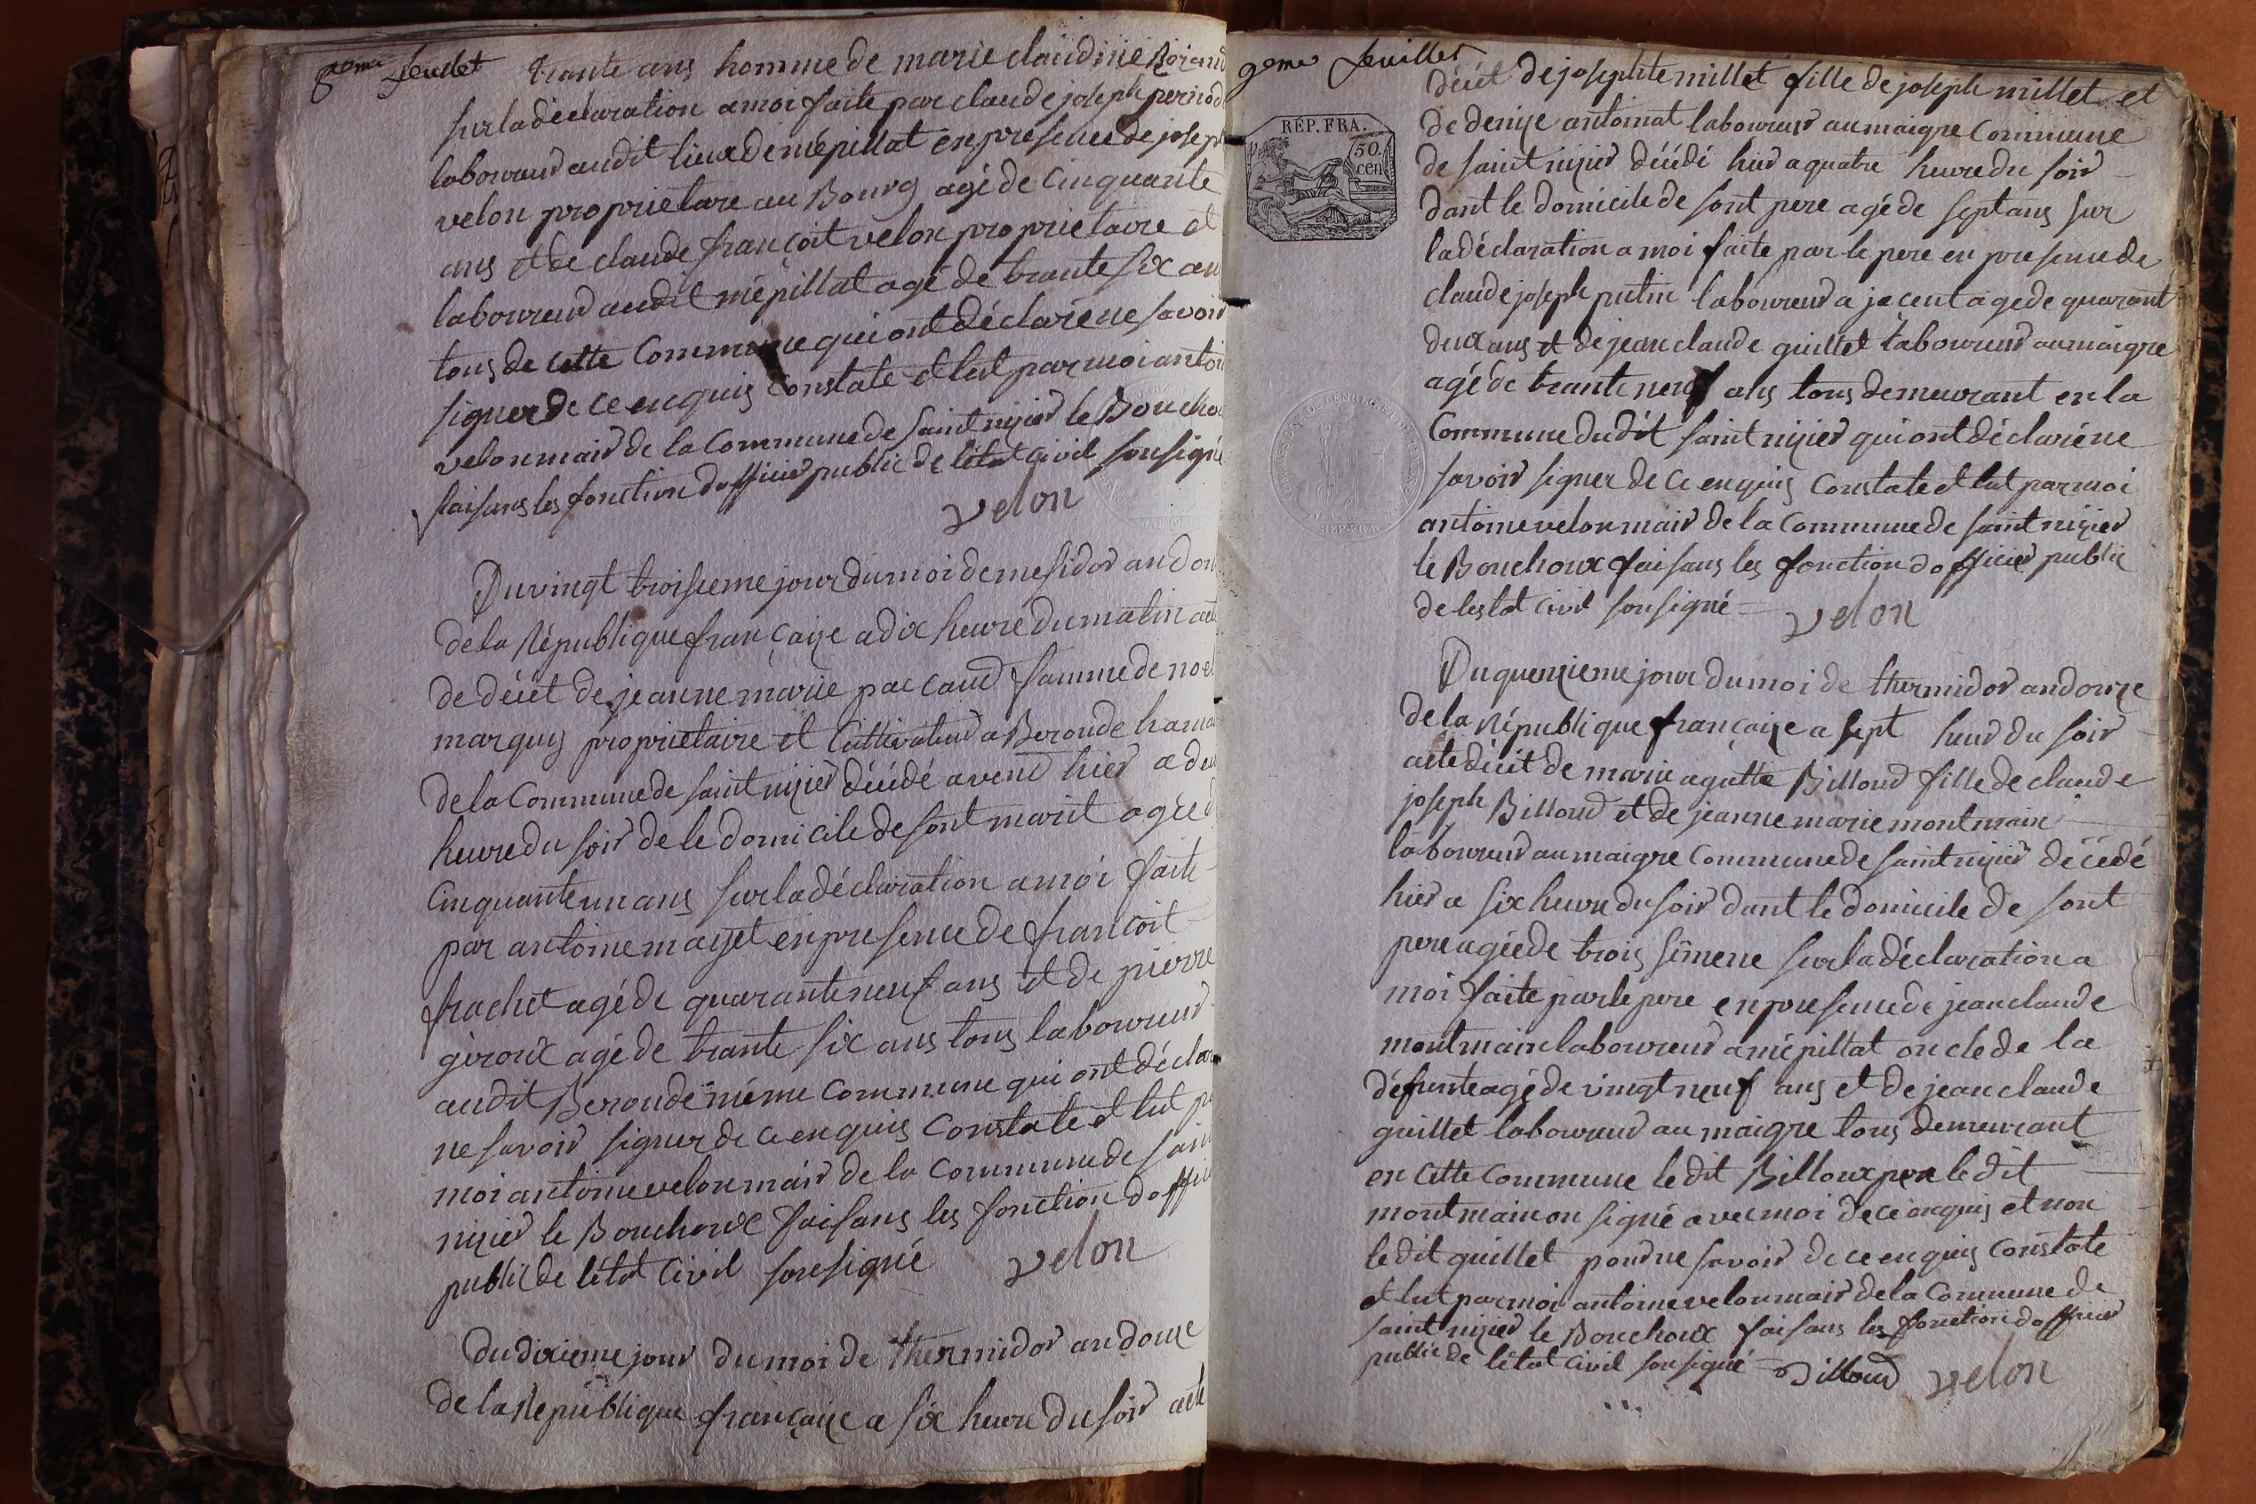 8eme feuillet
trante ans homme de marie claudine
sur la déclaration a moi faite par claude joseph
laboureur audit lieux de mépillat en presence de joseph
velon proprietaire au Bourg agé de Cinquante
ans et de claude françoit velon proprietaire et
laboureur audit mépillat agé de trante six
tous de cette Commune qui ont déclaré ne savoir
signer de ce enquis Constate et lut par moi
velon mair de la Commune de saint nizier le
faisans les fonction dofficier public de létat Civil sousigné
velon
Du vingt troisieme jour du moi de mesidor an
de la République françaize a dix heure du matin
de décèt de jeanne marie paccaud famme de
marquis proprietaire et Cultivateur a Beronde
de la Commune de saint nizier décédé avent hier a
heure du soir de le domicile de sont marit agée
Cinquante un ans sur la déclaration a moi faite
par antoine mayet en presence de francoit
frachet agé de quarante neuf ans et de pierre
giroux agé de trante six ans tous laboureur
audit Beronde même Commune qui ont
ne savoir signer de ce enquis Constate et lut
moi antoine velon mair de la Commune de
nizier le Bouchoux faisans les fonction
public de létat Civil sousigné
velon
Du dixieme jour du moi de thermidor an douze
de la République françaize a six heure du soir acte
9eme feuillet
RÉP. FRA.
50.
cen
décèt de josephte millet fille de joseph millet et
de denize antomat laboureur au maigre Commune
de saint nizier décédé hier a quatre heure du soir
dant le domicile de sont pere agé de sept ans sur
la déclaration a moi faite par le pere en presence de
claude joseph putin laboureur a jacent agé de quarant
deux ans et de jean claude guillet laboureur au maigre
agé de trante neuf ans tous demeurant en la
Commune dudit saint nizier qui ont déclaré ne
savoir signer de ce enquis Constate et lut par moi
antoine velon mair de la Commune de saint nizier
le Bouchoux faisans les fonction dofficier public
de lestat Civil sousigné
velon
Du quenzieme jour du moi de thermidor an douze
de la République françaize a sept heur du soir
acte décèt de marie agatte Billoud fille de claude
joseph Billoud et de jeanne marie montmain
laboureur au maigre Commune de saint nizier décédé
hier a six heure du soir dant le domicile de sont
pere agée de trois semene sur la déclaration a
moi faite par le pere en presence de jean claude
montmain laboureur a mépillat oncle de la
défunte agé de vingt neuf ans et de jean claude
guillet laboureur au maigre tous demeurant
en cette Commune le dit Billoux pere le dit
montmain on signé avec moi de ce enquis et non
le dit guillet pour ne savoir de ce enquis Constate
et lut par moi antoine velon mair de la Commune de
saint nizier le Bouchoux faisans les fonction dofficier
public de létat Civil sousigné
Billoud velon